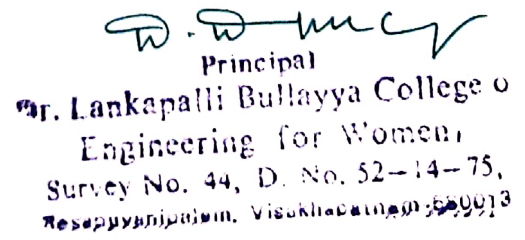 Principal
Dr. Lankapalli Bullayya College o
Engineering for Women,
Survey No. 44, D. No. 52-14-75,
Resapuvanipalem, Visakhapatnam